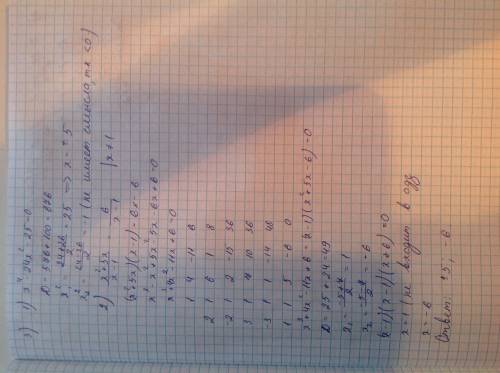 3) 1) x⁴-24x²-25=0
D=576+100=676
x²=(24+26)/2=25 => x=±5
x²=(24-26)/2=-1 (не имеет смысла, тк <0)
2) (x²+5x)/(x-1)=6/(x-1) |x≠1
(x²+5x)(x-1)=6x-6
x³-x²+5x²-5x-6x+6=0
x³+4x²-11x+6=0
1 4 -11 6
2 1 6 1 8
-2 1 2 -15 36
3 1 7 10 36
-3 1 1 -14 48
1 1 5 -6 0
x³+4x²-11x+6=(x-1)(x²+5x-6)=0
D=25+24=49
x₁=(-5+7)/2=1
x₂=(-5-7)/2=-6
(x-1)(x-1)(x+6)=0
x=1 (не входит в одз)
x=-6
Ответ: ±5; -6